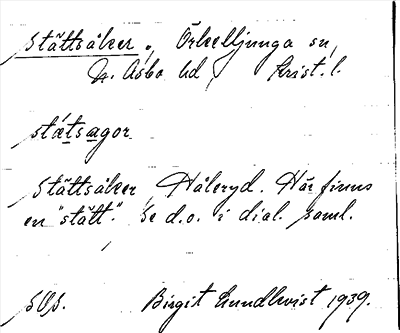 Stättsåker, Örkelljunga sn,
N. Åsbo hd, Krist. l.
stætsagor
Stättsåker, Håleryd. Här finns
en "stätt". Se d.o. i dial. saml.
Birgit Lundkvist 1939.